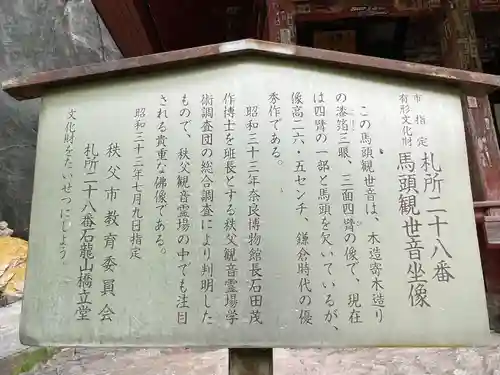 市指定
有形文化財
札所二十八番
馬頭観世音坐像
この馬頭観世音は、木造寄木造り
の漆箔三眼、三面四臂の像で、現在
は四臂の一部と馬頭を欠いているが、
像高二六・五センチ、鎌倉時代の優
秀作である。
昭和三十三年奈良博物館長石田茂
作博士を班長とする秩父観音霊場学
術調査団の総合調査により判明した
もので、秩父観音霊場の中でも注目
される貴重な佛像である。
昭和三十三年七月九日指定
秩父市教育委員会
札所二十八番石龍山橋立堂
文化財をたいせつにしよう。